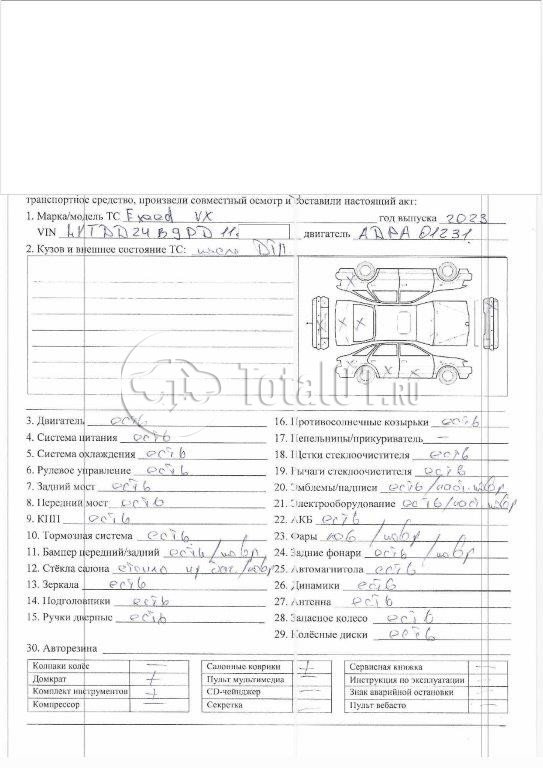 транспортное средство, произвели совместный осмотр и составили настоящий акт:
1. Марка/модель ТС Exeed VX год выпуска 2023
VIN LVTDD24B9PD11 двигатель ADPA 01231
2. Кузов и внешнее состояние ТС: после ДТП
Total01.RU
3. Двигатель есть
4. Система питания есть
5. Система охлаждения есть
6. Рулевое управление есть
7. Задний мост есть
8. Передний мост есть
9. КПП есть
10. Тормозная система есть
11. Бампер передний/задний есть / повр
12. Стёкла салона /повр
13. Зеркала есть
14. Подголовники есть
15. Ручки дверные есть
16. Противосолнечные козырьки есть
17. Пепельницы/прикуриватель —
18. Щетки стеклоочистителя есть
19. Рычаги стеклоочистителя есть
20. Эмблемы/надписи есть /
21. Электрооборудование есть/
22. АКБ есть
23. Фары / повр
24. Задние фонари есть / повр
25. Автомагнитола есть
26. Динамики есть
27. Антенна есть
28. Запасное колесо есть
29. Колёсные диски есть
30. Авторезина
Колпаки колёс —
Домкрат +
Комплект инструментов +
Компрессор —
Салонные коврики +
Пульт мультимедиа —
CD-чейнджер —
Секретка —
Сервисная книжка —
Инструкция по эксплуатации —
Знак аварийной остановки —
Пульт вебасто —